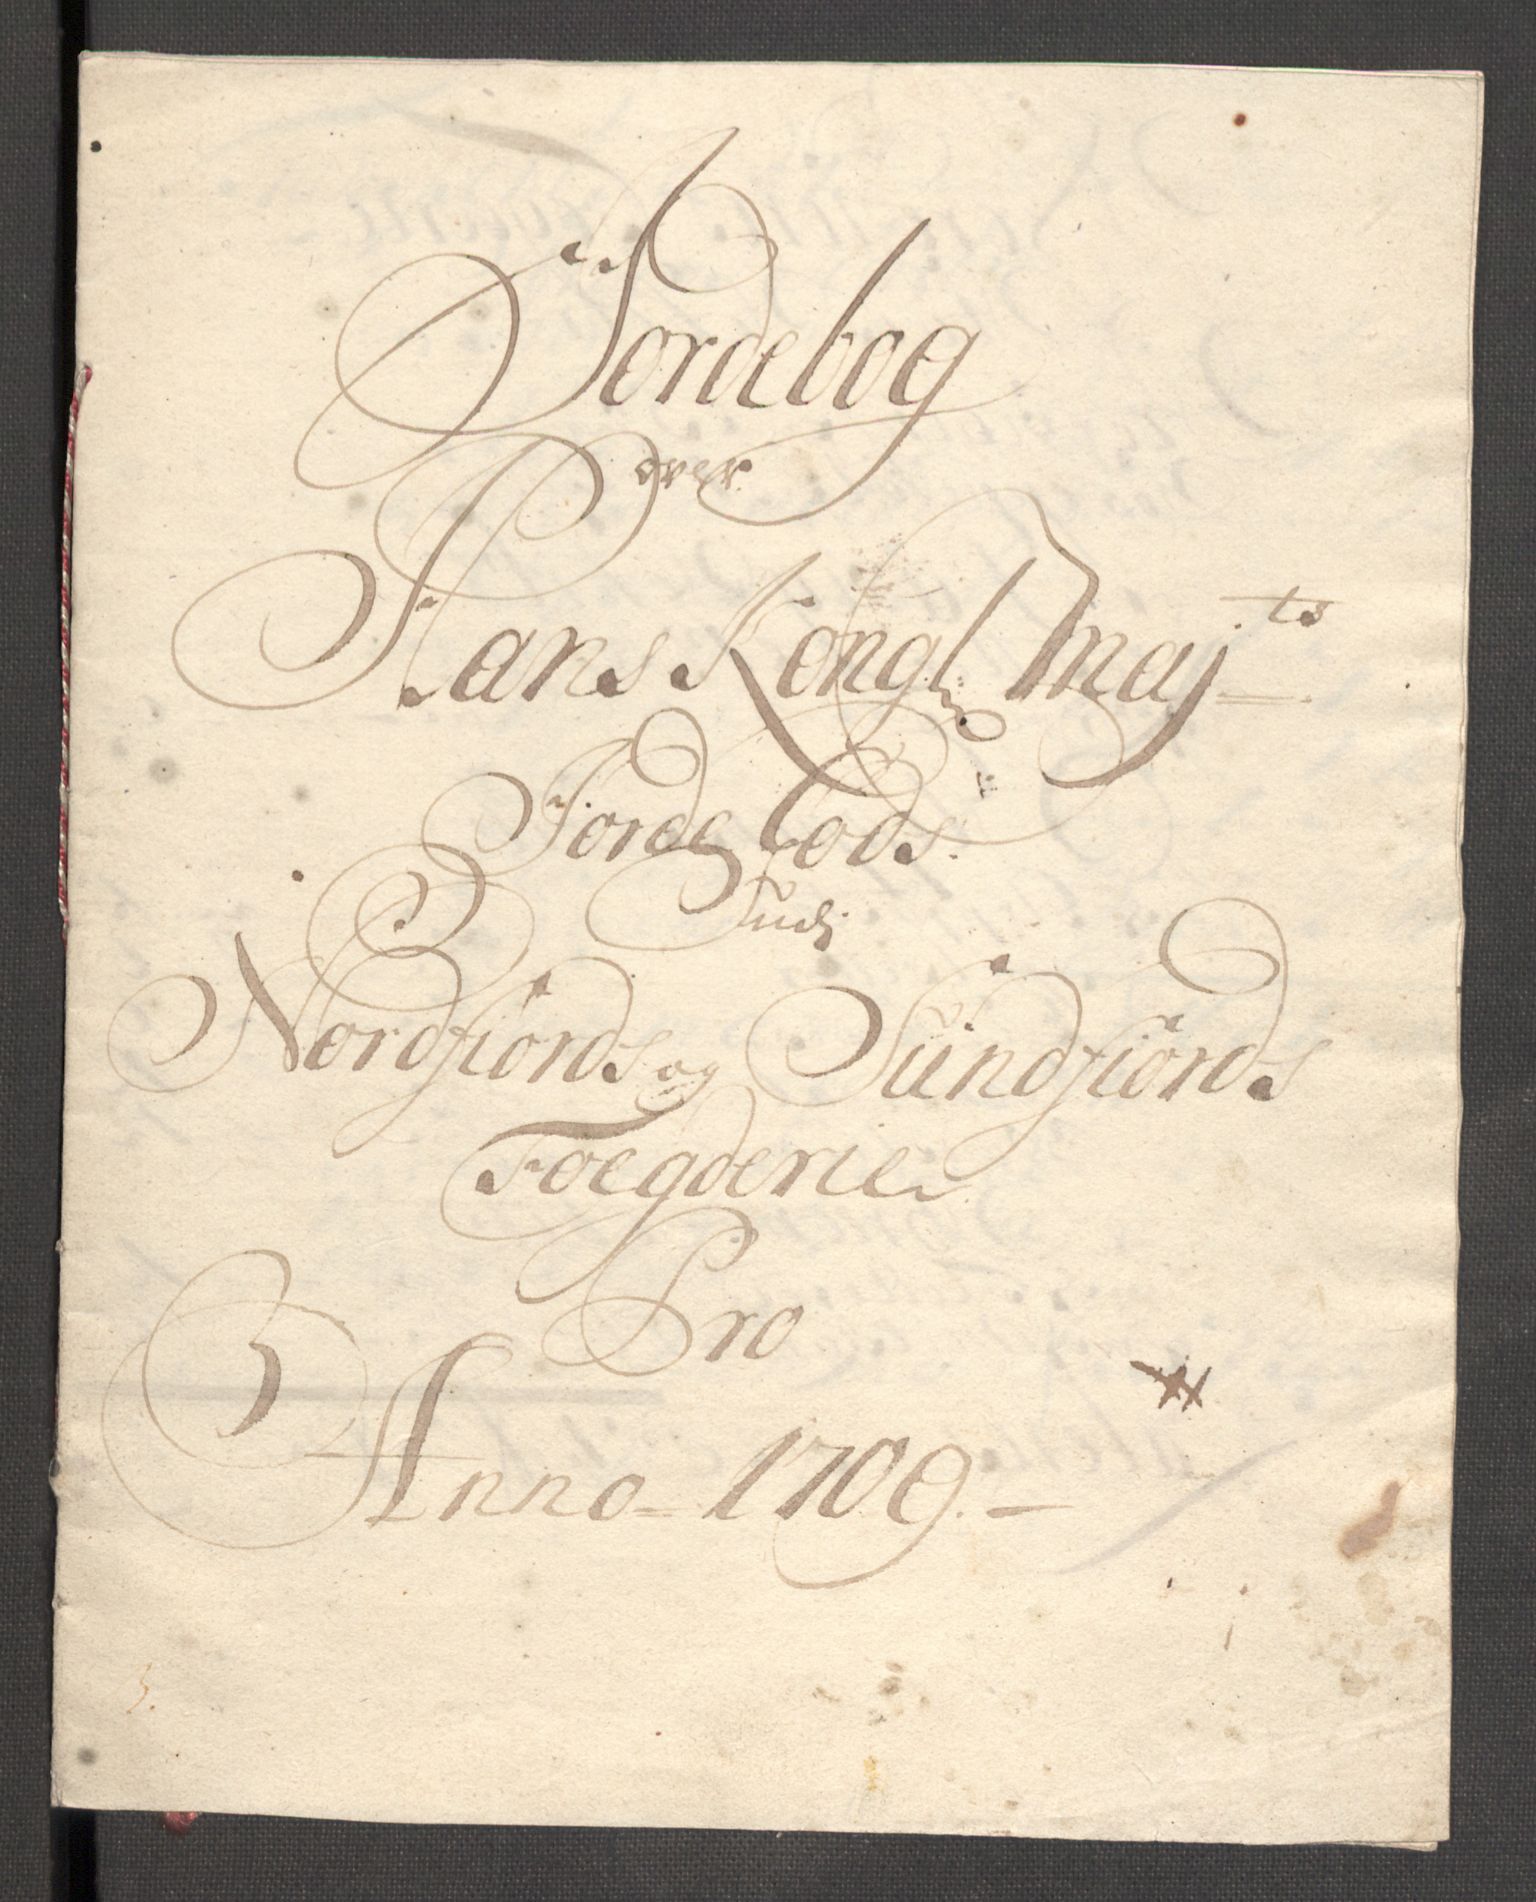 Jordebog
over
Hans Kongl Maj^ts
Jorde Gods
Udj
Nordfiords og Sündfiords
Foegderie
Pro
Anno 1709.
3.